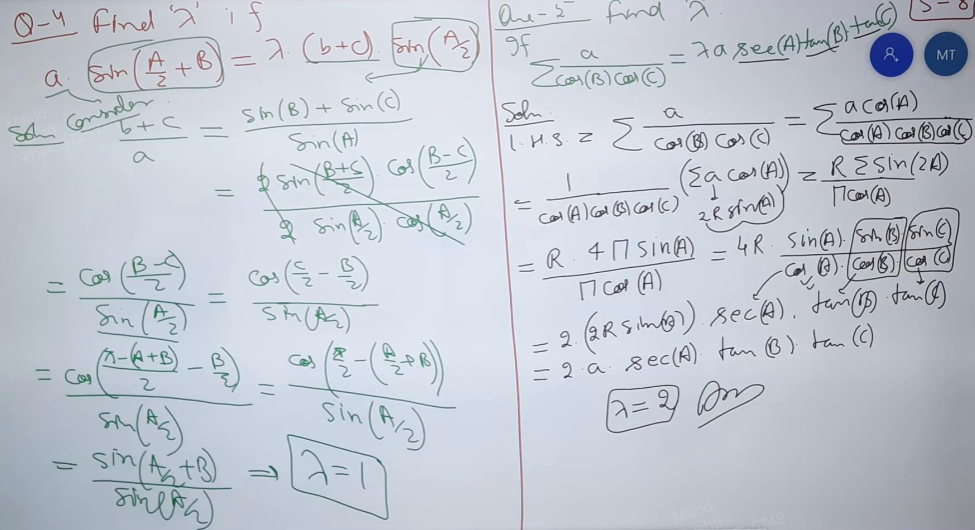 Q-4 Find 'λ' if
a. sin(A/2 + B) = λ. (b+c). sin(A/2)
Soln Consider
b+c/a = sin(B) + sin(C)/sin(A)
= 2 sin(B+C/2). cos(B-C/2)/2 sin(A/2). cos(A/2)
= cos(B-C/2)/sin(A/2) = cos(C/2 - B/2)/sin(A/2)
= cos(π-(A+B)/2 - B/2)/sin(A/2) = cos(π/2 - (A/2+B))/sin(A/2)
= sin(A/2+B)/sin(A/2) ⇒ λ=1
Que-5 Find λ.
If
∑ a/cos(B) cos(C) = λa sec(A) tan(B). tan(C)
5-8
MT
Soln.
L.H.S. = ∑ a/cos(B) cos(C) = ∑ a cos(A)/cos(A) cos(B) cos(C)
= 1/cos(A) cos(B) cos(C) (∑ a cos(A)) = R ∑ sin(2A)/Π cos(A)
2R sin(A)
= R. 4 Π sin(A)/Π cos(A) = 4R. sin(A). sin(B) sin(C)/cos(A). cos(B) cos(C)
= 2. (2R sin(A)). sec(A). tan(B). tan(C)
= 2. a. sec(A). tan(B). tan(C)
λ=2 Ans